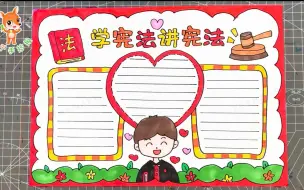 法
学宪法讲宪法